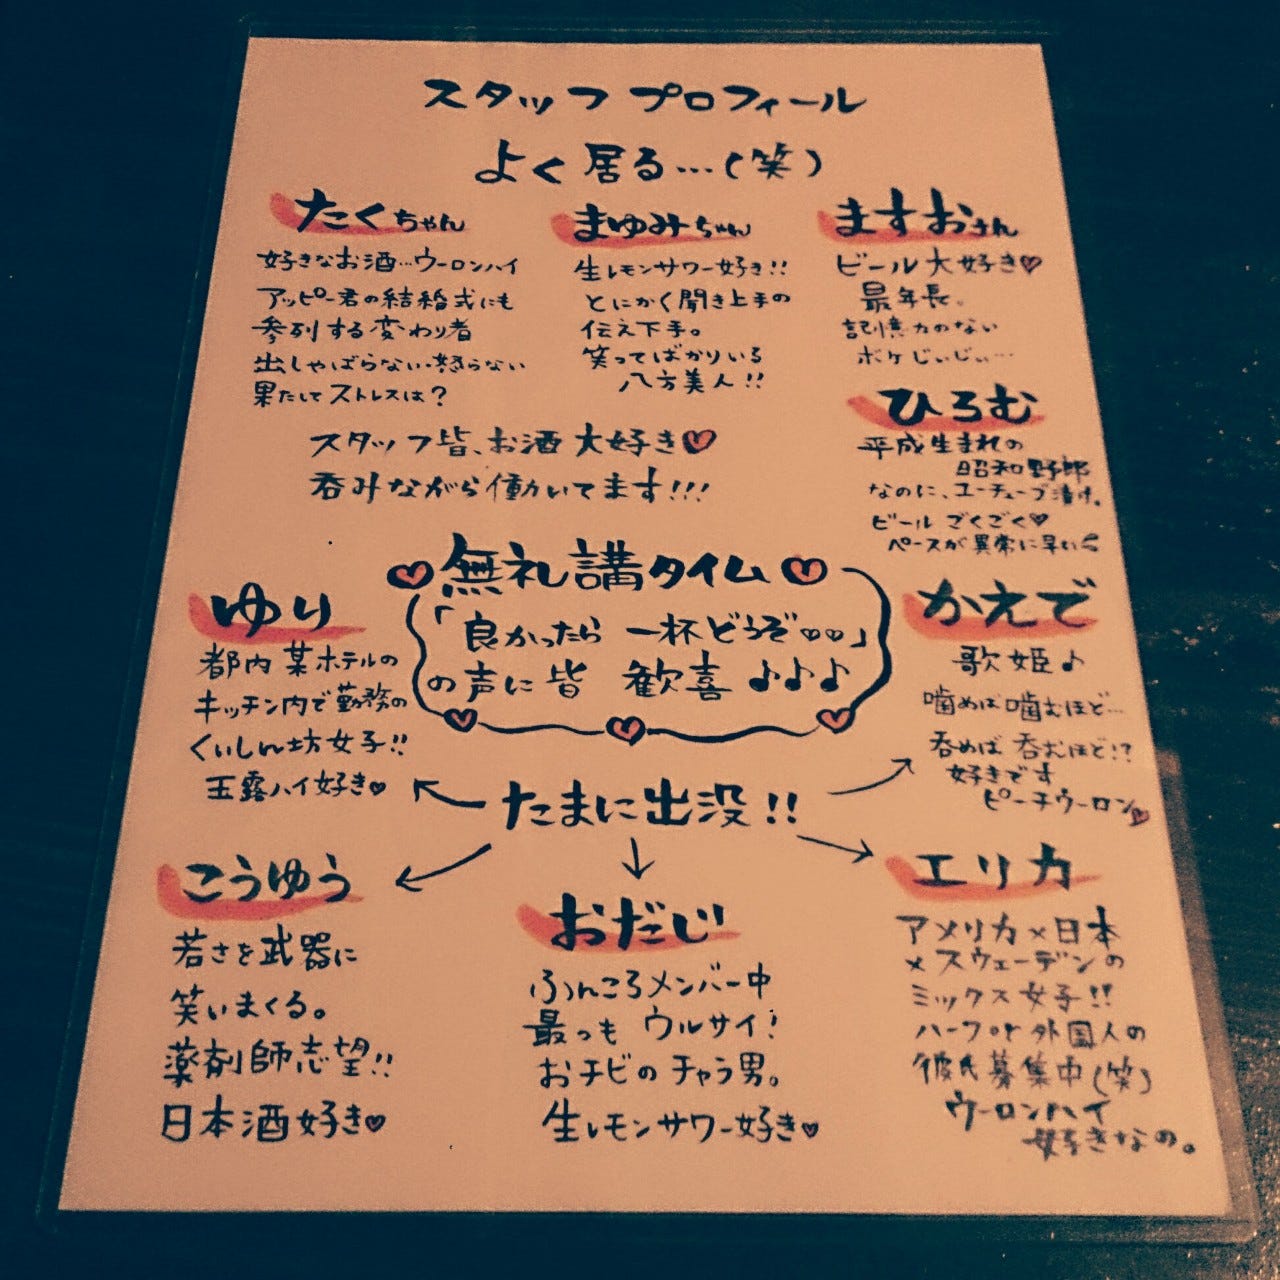 スタッフ プロフィール
よく居る…(笑)
たくちゃん
好きなお酒…ウーロンハイ
アッピー君の結婚式にも
参列する変わり者
出しゃばらない・怒らない
果たしてストレスは?
まゆみちゃん
生レモンサワー好き!!
とにかく聞き上手の
伝え下手。
笑ってばかりいる
八方美人!!
ますおさん
ビール大好き♡
最年長。
記憶力のない
ボケじぃじぃ…
ひろむ
平成生まれの
昭和野郎
なのに、ユーチューブ漬け。
ビールごくごく♡
ペースが異常に早い
スタッフ皆、お酒大好き♡
呑みながら働いてます!!!
♡無礼講タイム♡
「良かったら 一杯どうぞ♡♡」
の声に皆 歓喜♪♪♪
たまに出没!!
ゆり
都内某ホテルの
キッチン内で勤務の
くいしん坊女子!!
玉露ハイ好き♡
かえで
歌姫♪
噛めば噛むほど…
呑めば呑むほど!?
好きです
ピーチウーロン♡
こうゆう
若さを武器に
笑いまくる。
薬剤師志望!!
日本酒好き♡
おだじ
ふんころメンバー中
最っも ウルサイ!
おチビのチャラ男。
生レモンサワー好き♡
エリカ
アメリカ×日本
×スウェーデンの
ミックス女子!!
ハーフor外国人の
彼氏募集中(笑)
ウーロンハイ
好きなの。